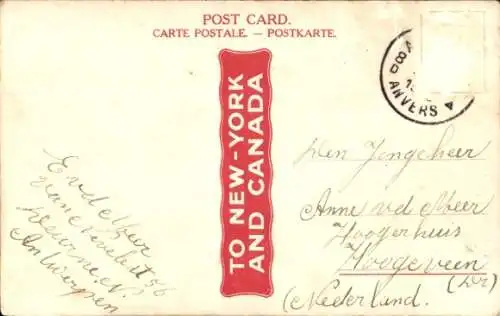 POST CARD.
CARTE POSTALE. — POSTKARTE.
TO NEW-YORK
AND CANADA
ANVERS
Den Jongeheer
Anne v d Meer
Hoogerhuis
Hoogeveen
(Dr)
(Nederland.
E v d Meer
56
Deurne. N.
Antwerpen